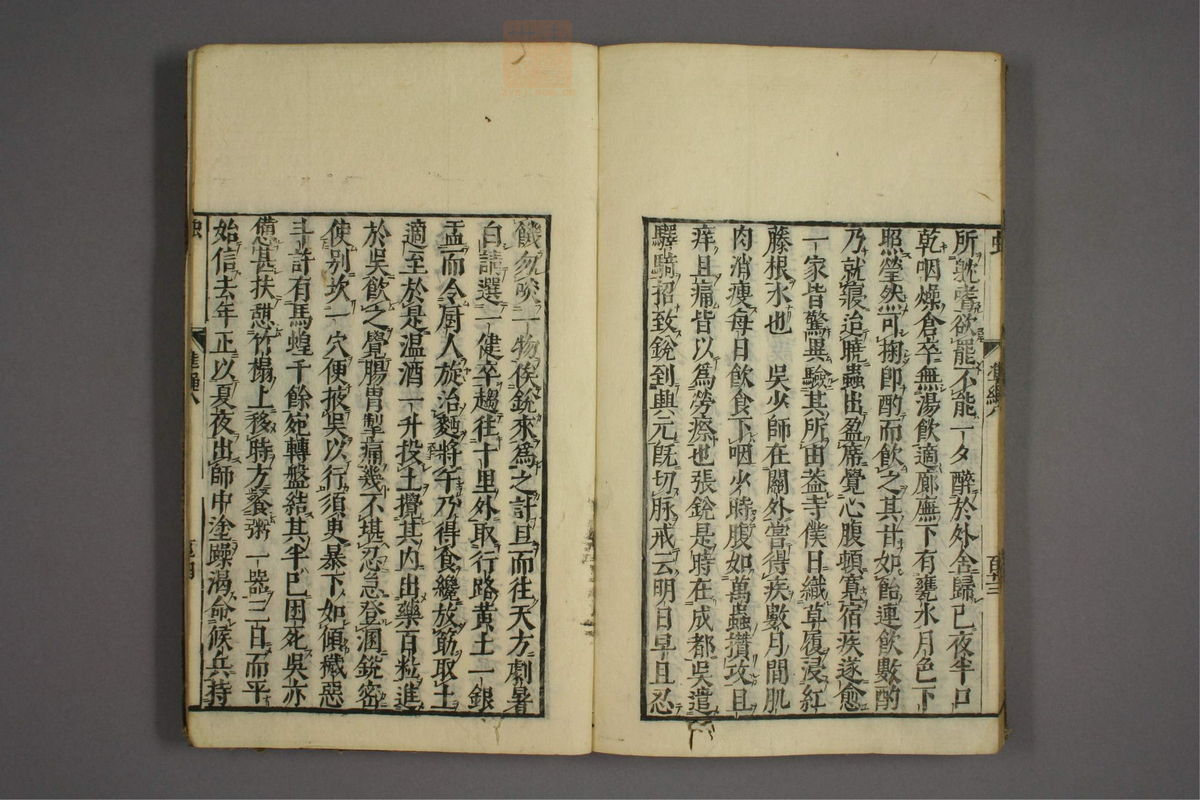 所耽嗜欲罷不能一夕醉於外舍歸已夜半口
乾咽燥倉卒無湯飲適廊廡下有甕水月色下
照瑩然可掬即酌而飲之其甘如飴連飲數酌
乃就寢迨曉蟲出盈席覺心腹頓寬宿疾遂愈
一家皆驚異驗其所由蓋寺僕日織草履浸紅
藤根水也　吳少師在關外嘗得疾數月間肌
肉消瘦每日飲食下咽少時腹如萬蟲攢攻且
痒且痛皆以為勞瘵也張銳是時在成都吳遣
驛騎招致銳到興元既切脉戒云明日早且忍
饑勿啖一物俟銳來為之計旦而往天方劇暑
白請選一健卒趨往十里外取行路黃土一銀
盂而令厨人旋治麵將午乃得食纔放筯取土
適至於是温酒一升投土攪其内出藥百粒進
於吳飲之覺腸胃掣痛幾不堪忍急登溷銳密
使別坎一穴便掖吳以行須臾暴下如傾穢惡
斗許有馬蝗千餘宛轉盤結其半已困死吳亦
憊甚扶憩竹榻上移時方餐粥一器三日而平
始信去年正以夏夜出師中塗躁渴命候兵持